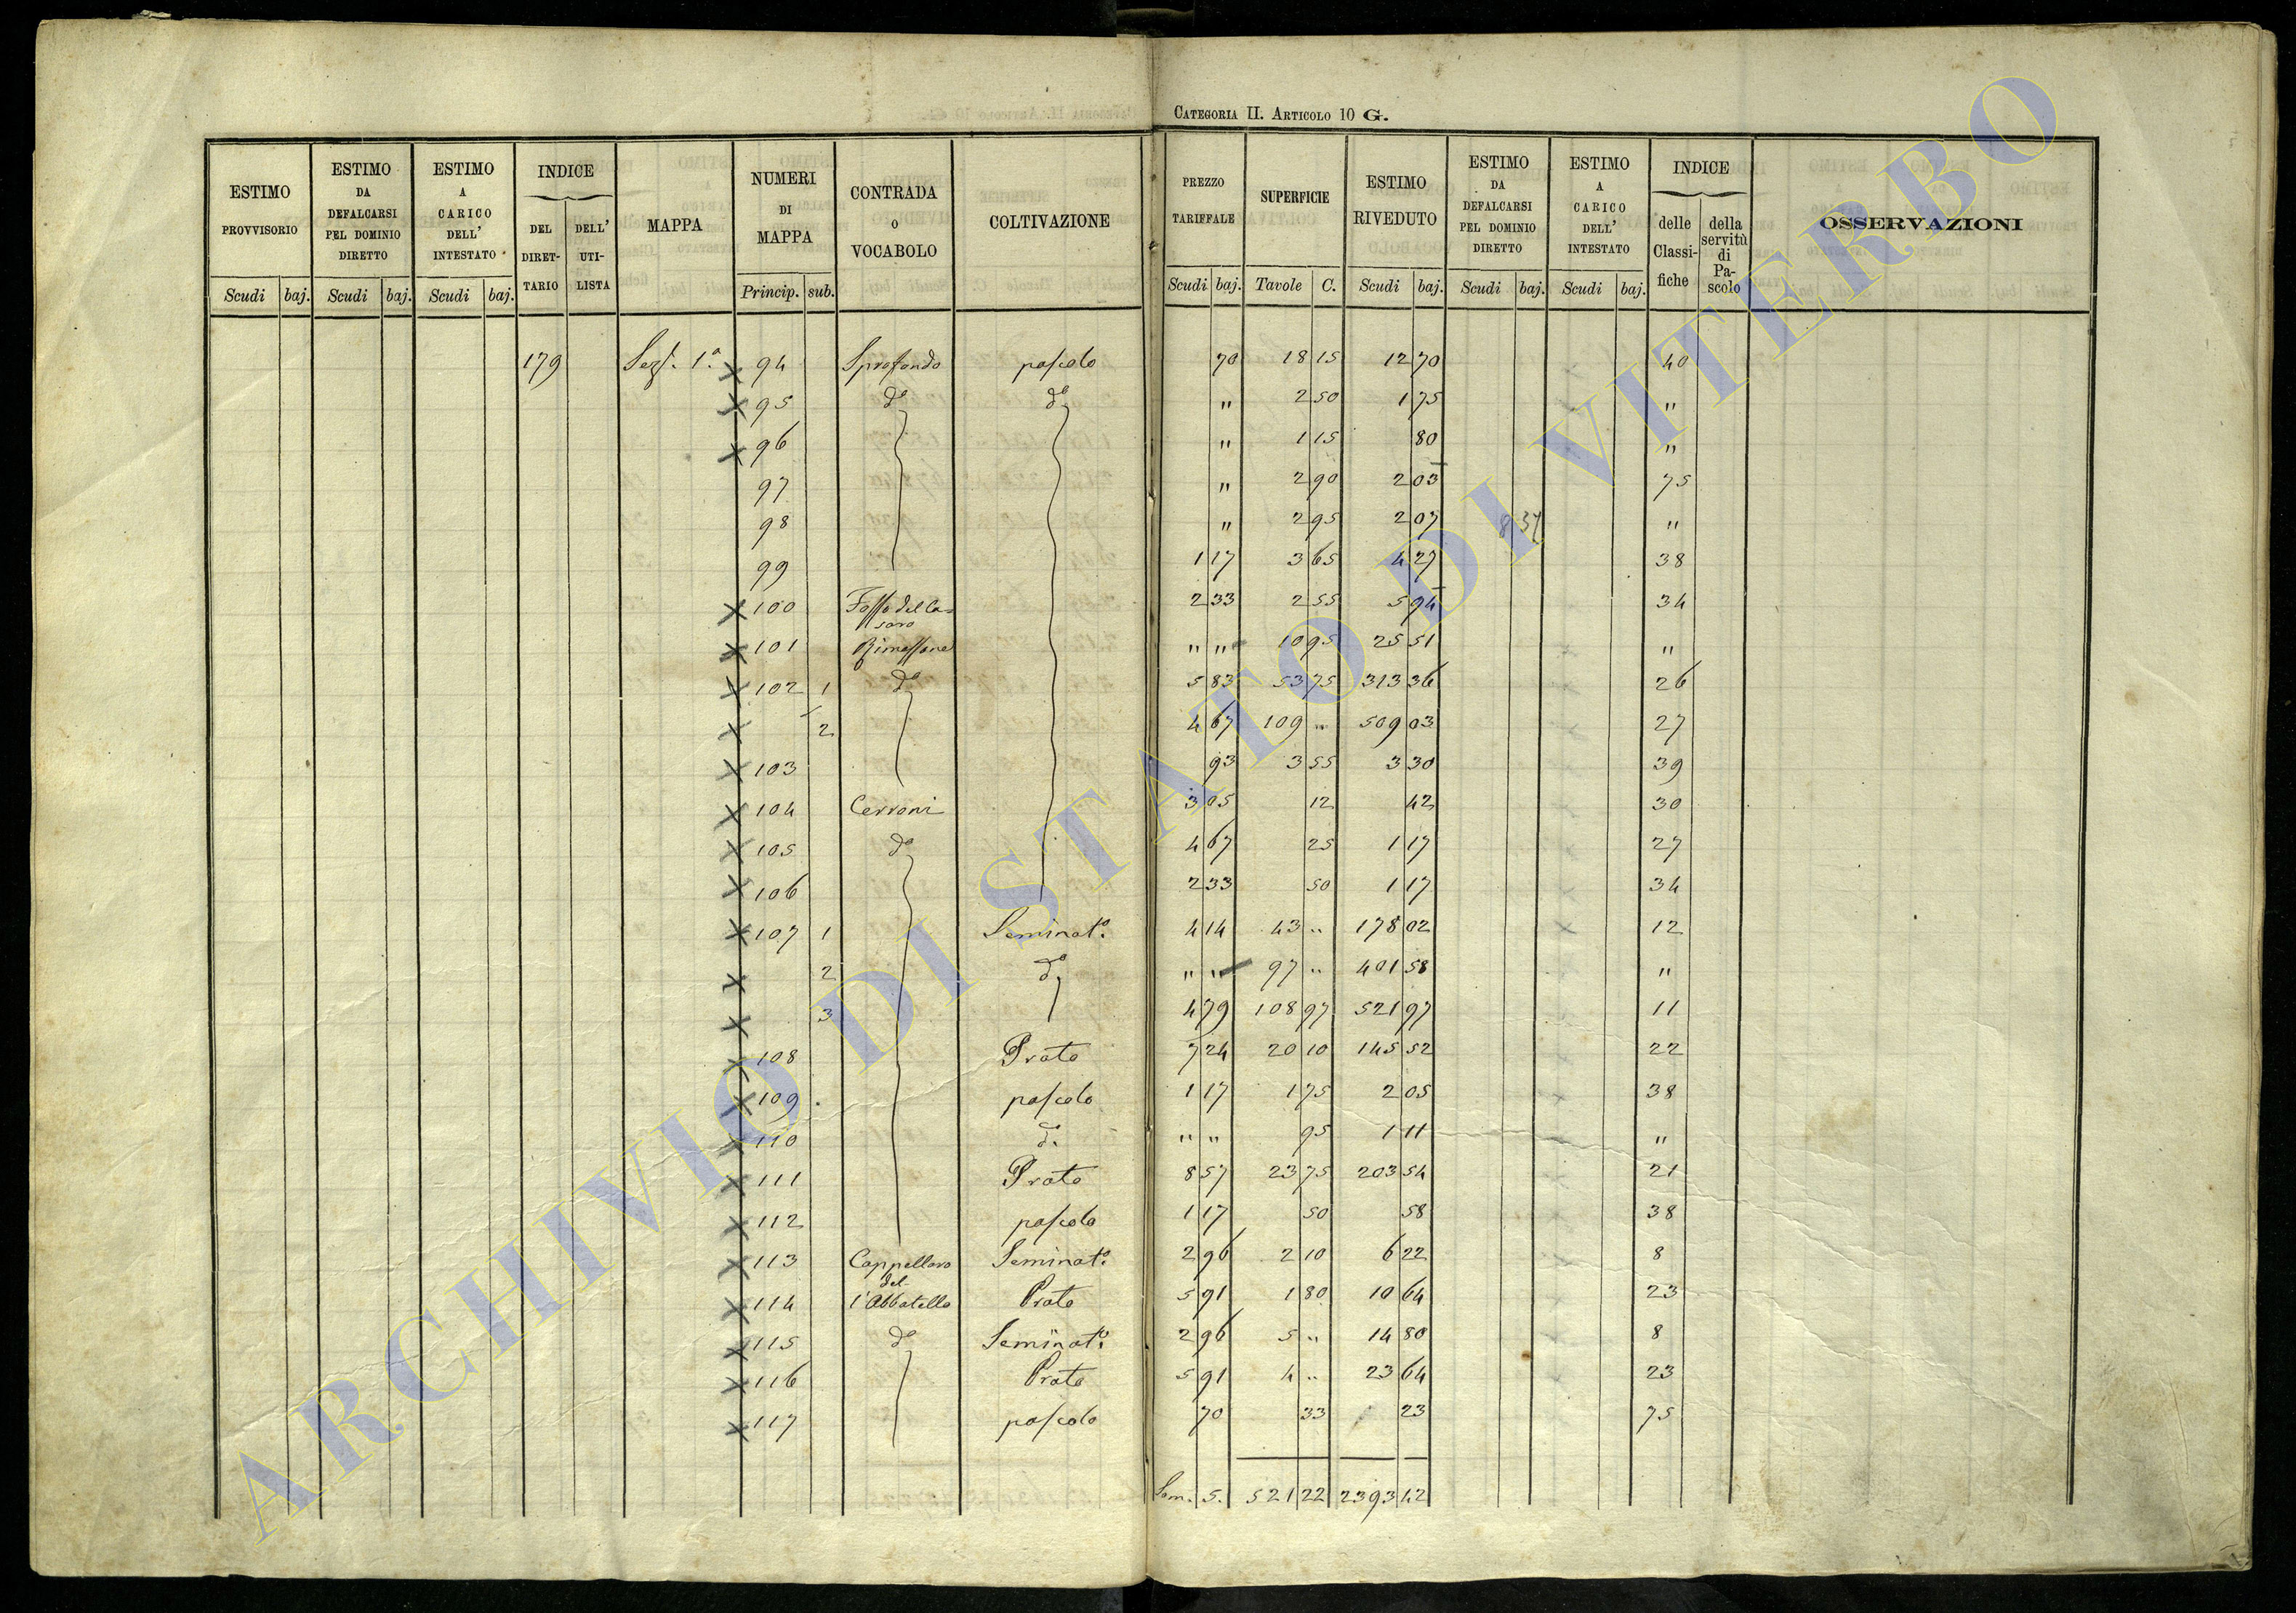 CATEGORIA II. ARTICOLO 10 G.
ESTIMO PROVVISORIO Scudi baj. ESTIMO DA DEFALCARSI PEL DOMINIO DIRETTO Scudi baj. ESTIMO A CARICO DELL' INTESTATO Scudi baj. INDICE DEL DIRETTARIO DELL' UTILISTA MAPPA NUMERI DI MAPPA Princip. sub. CONTRADA O VOCABOLO COLTIVAZIONE PREZZO TARIFFALE Scudi baj. SUPERFICIE Tavole C. ESTIMO RIVEDUTO Scudi baj. ESTIMO DA DEFALCARSI PEL DOMINIO DIRETTO Scudi baj. ESTIMO A CARICO DELL' INTESTATO Scudi baj. INDICE delle Classifiche della servitù di Pascolo OSSERVAZIONI
179 Sez. 1ª x 94 Sprofondo pascolo 70 18 15 12 70 40
x 95 d° d° " 2 50 1 75 "
x 96 " 1 15 80 "
97 " 2 90 2 03 75
98 " 2 95 2 07 8 37 "
99 1 17 3 65 4 27 38
x 100 Fosso del Casaro 2 33 2 55 5 94 34
x 101 Rimessone " " 10 95 25 51 "
x 102 1 d° 5 83 53 75 313 36 26
x 2 4 67 109 " 509 03 27
x 103 93 3 55 3 30 39
x 104 Cerroni 3 05 12 42 30
x 105 d° 4 67 25 1 17 27
x 106 2 33 50 1 17 34
x 107 1 Seminat° 4 14 43 " 178 02 12
x 2 d° " " 97 " 401 58 "
x 3 4 79 108 97 521 97 11
x 108 Prato 7 24 20 10 145 52 22
x 109 pascolo 1 17 1 75 2 05 38
x 110 d° " " 95 1 11 "
x 111 Prato 8 57 23 75 203 54 21
x 112 pascolo 1 17 50 58 38
x 113 Cappellaro Seminat° 2 96 2 10 6 22 8
del
x 114 l'Abbatello Prato 5 91 1 80 10 64 23
x 115 d° Seminat° 2 96 5 " 14 80 8
x 116 Prato 5 91 4 " 23 64 23
x 117 pascolo 70 33 23 75
Som. S. 521 22 2393 42
ARCHIVIO DI STATO DI VITERBO